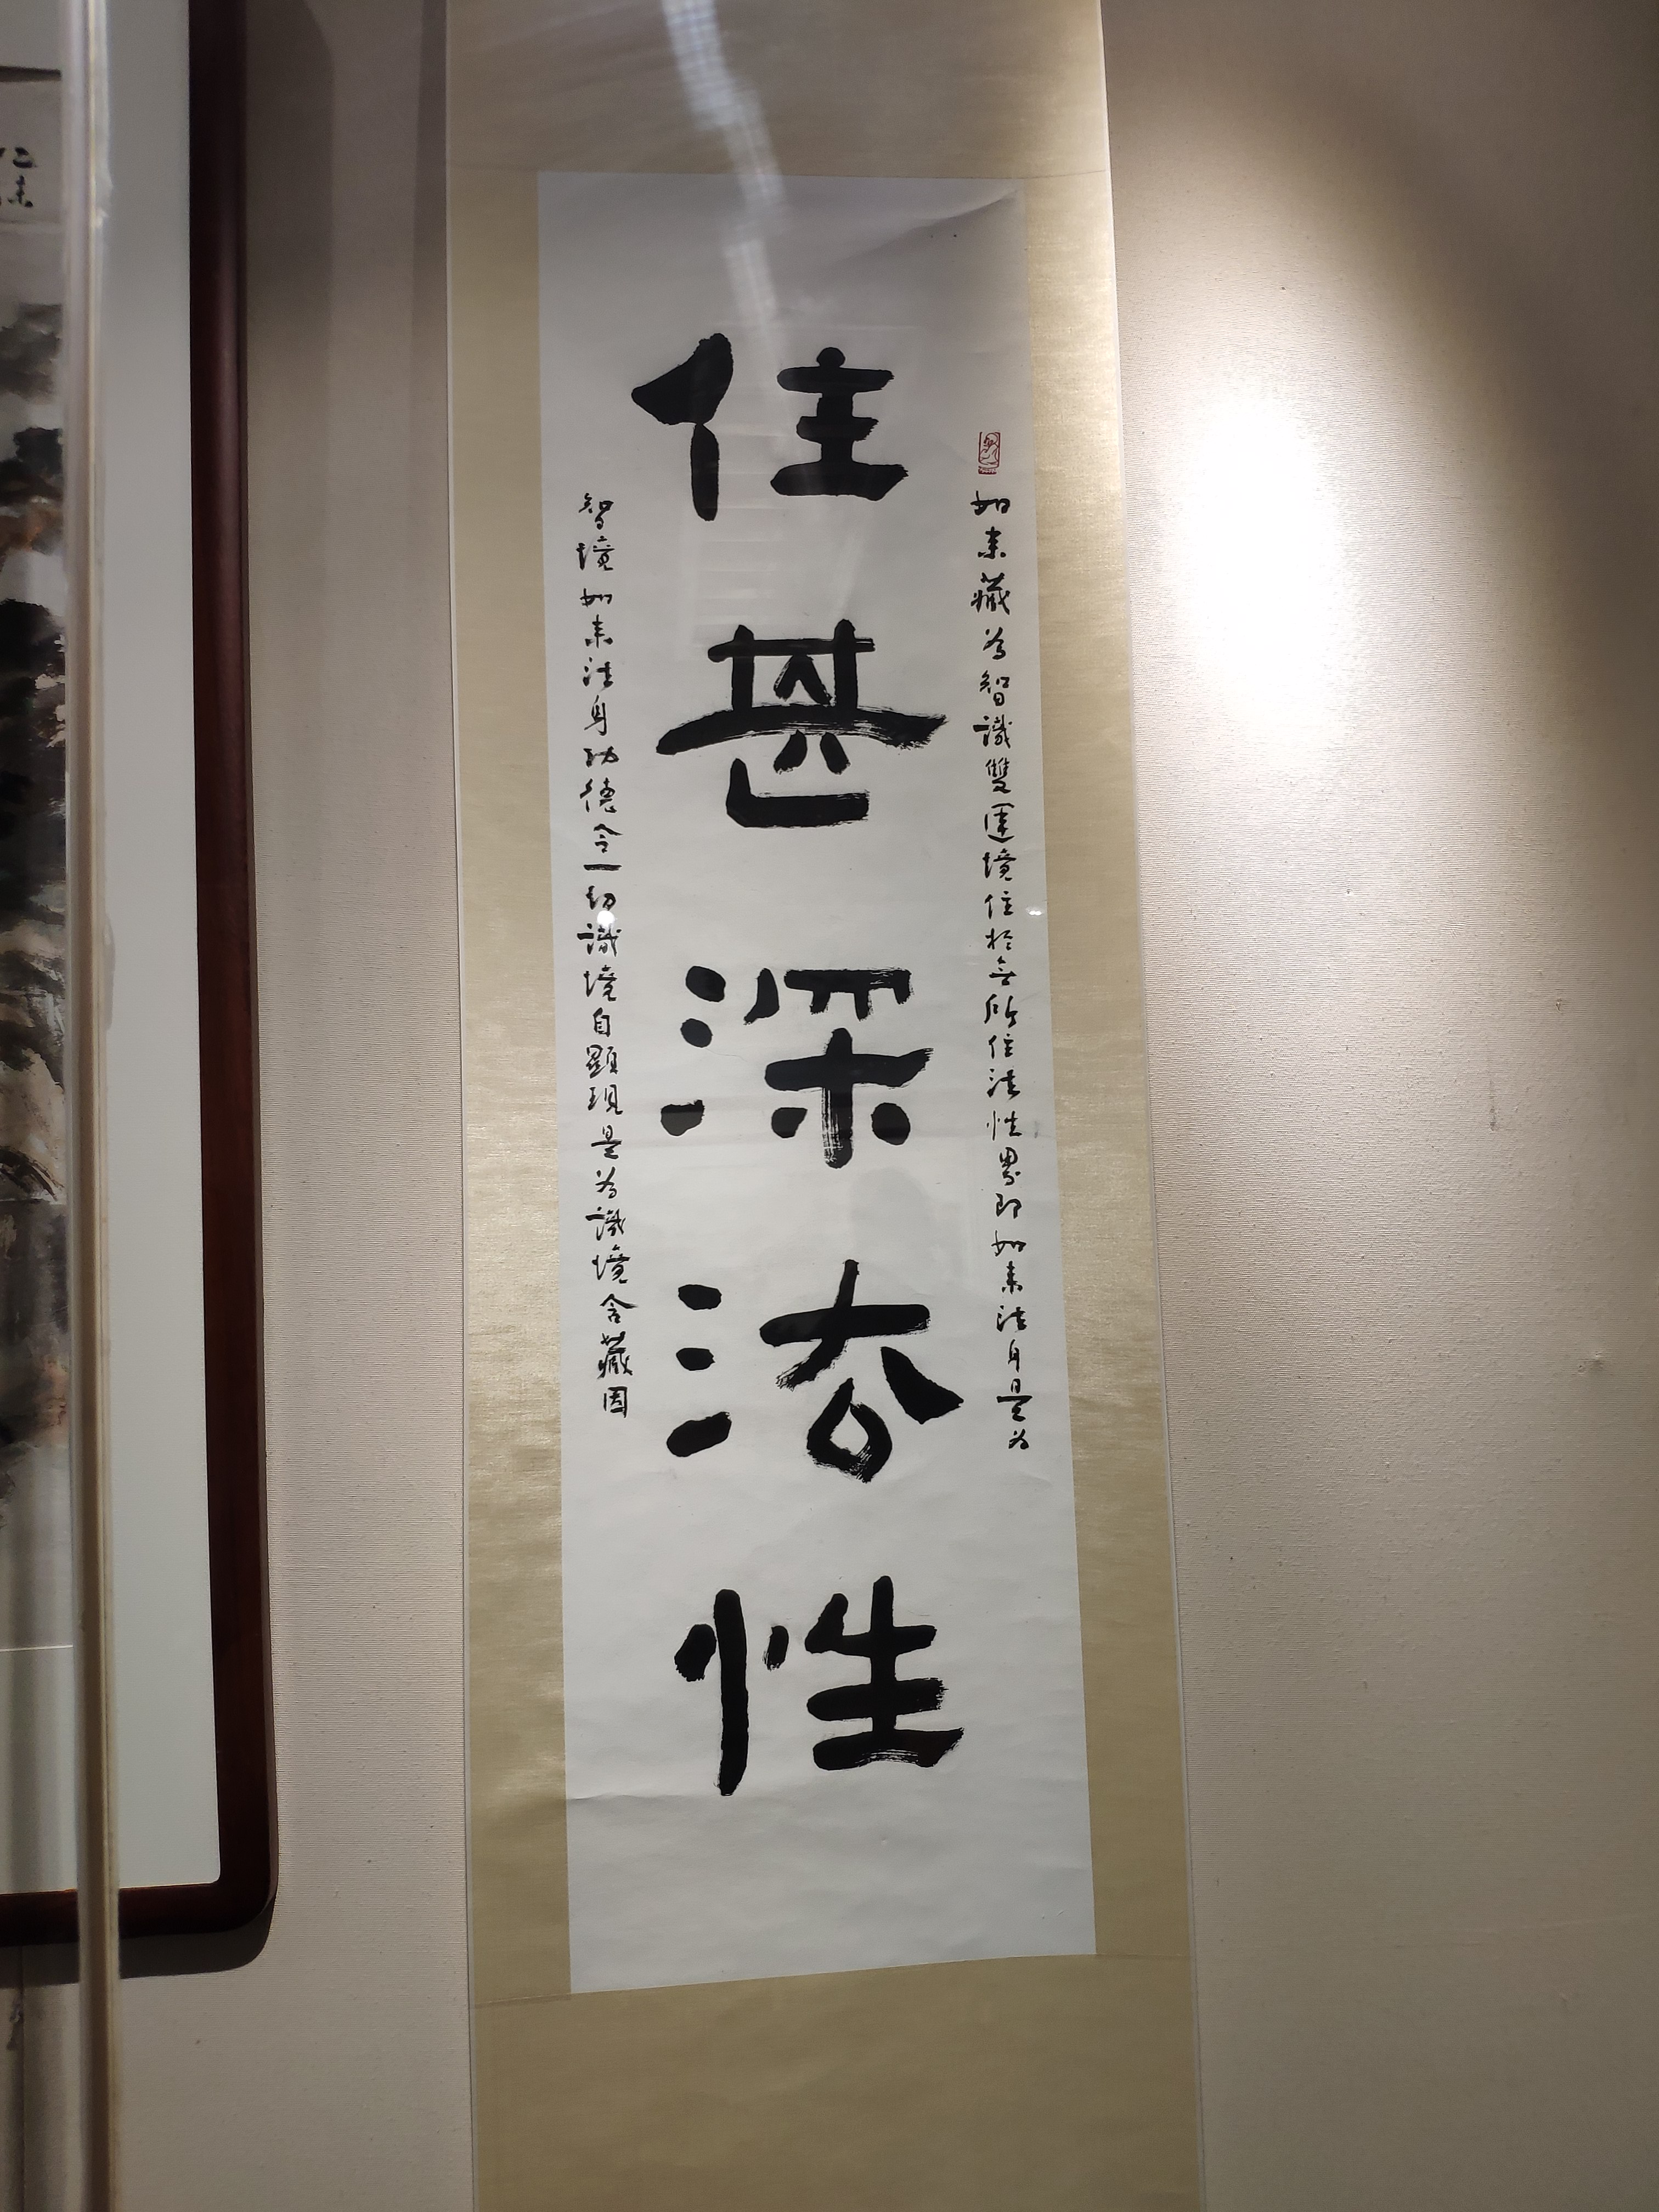 如来藏為智識雙運境住於無所住法性界即如来法身是為
住甚深法性
智境如来法身功德令一切識境自顯現是為識境含藏因